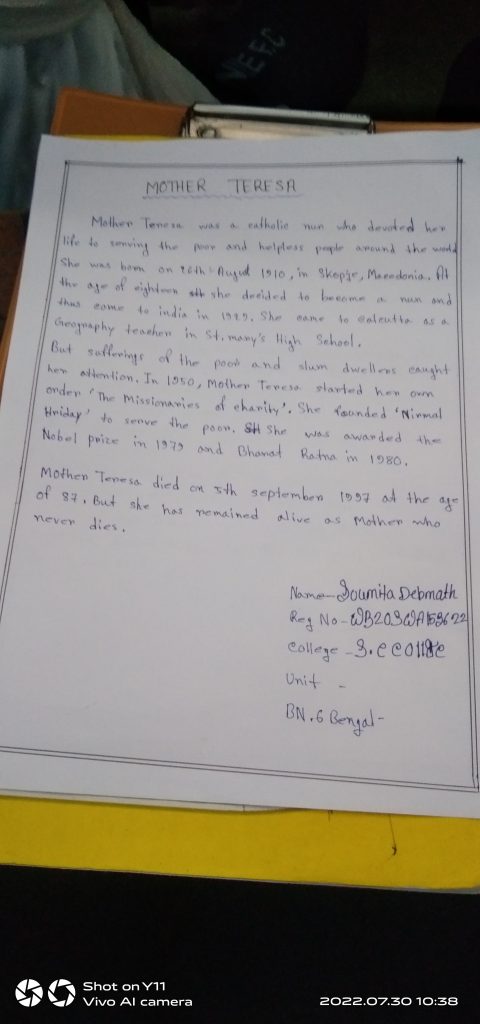 MOTHER TERESA
Mother Teresa was a catholic nun who devoted her
life to serving the poor and helpless people around the world
She was born on 26th August 1910, in Skopje, Macedonia. At
the age of eighteen she decided to become a nun and
thus come to india in 1929. She came to Calcutta as a
Geography teacher in St. mary's High School.
But sufferings of the poor and slum dwellers caught
her attention. In 1950, Mother Teresa started her own
order 'The Missionaries of charity'. She founded 'Nirmal
Hriday' to serve the poor. She was awarded the
Nobel prize in 1979 and Bharat Ratna in 1980.
Mother Teresa died on 5th september 1997 at the age
of 87. But she has remained alive as Mother who
never dies.
Name- Soumita Debnath
Reg No -
College - S.C COllEGE
Unit -
BN. 6 Bengal-
Shot on Y11
Vivo AI camera
2022.07.30 10:38